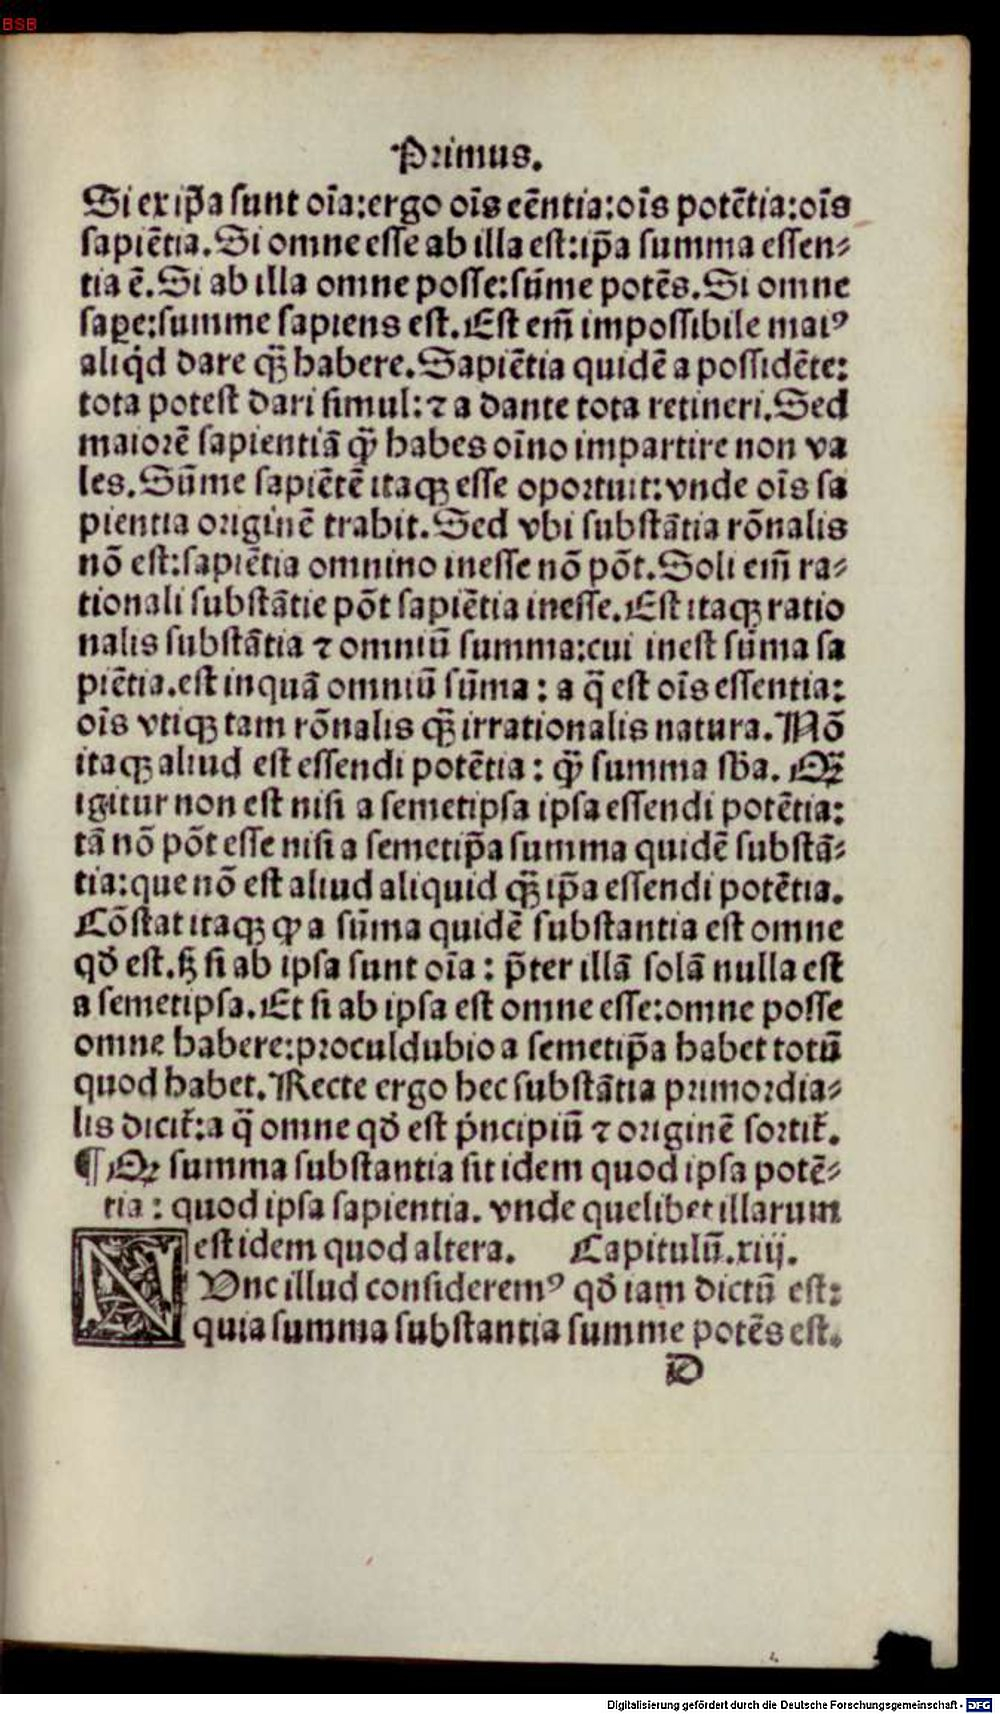 BSB
Primus.
Si ex ip̄a sunt oīa:ergo oīs eēntia:oīs potētia:oīs
sapiētia.Si omne esse ab illa est:ip̄a summa essen⸗
tia ē.Si ab illa omne posse:sūme potēs.Si omne
sapere:summe sapiens est.Est em̄ impossibile maiꝰ
aliq̇d dare qꝫ̄ habere.Sapiētia quidē a possidēte:
tota potest dari simul:⁊ a dante tota retineri.Sed
maiorē sapientiā q̄ꝫ habes oīno impartire non va
les.Sūme sapiētē itaqꝫ esse oportuit:vnde oīs sa
pientia originē trahit.Sed vbi substātia rōnalis
nō est:sapiētia omnino inesse nō pōt.Soli em̄ ra⸗
tionali substātie pōt sapiētia inesse.Est itaqꝫ ratio
nalis substātia ⁊ omniū summa:cui inest sūma sa
piētia.est inquā omniū sūma : a q̄ est oīs essentia:
oīs vtiqꝫ tam rōnalis qꝫ̄ irrationalis natura.Nō
itaqꝫ aliud est essendi potētia : q̄ꝫ summa sb̄a. Qꝫ̄
igitur non est nisi a semetipsa ipsa essendi potētia:
tā nō pōt esse nisi a semetip̄a summa quidē substā⸗
tia:que nō est aliud aliquid qꝫ̄ ip̄a essendi potētia.
Cōstat itaqꝫ ꝙ a sūma quidē substantia est omne
qđ est.ꜩ si ab ipsa sunt oīa : p̄ter illā solā nulla est
a semetipsa.Et si ab ipsa est omne esse:omne posse
omne habere:proculdubio a semetip̄a habet totū
quod habet.Recte ergo hec substātia primordia⸗
lis dicit̄:a q̄ omne qđ est p̍ncipiū ⁊ originē sortit̄.
¶ Qꝫ summa substantia sit idem quod ipsa potē⸗
tia : quod ipsa sapientia. vnde quelibet illarum
est idem quod altera. Capitulū.xiij.
NVnc illud consideremꝰ qđ iam dictū est:
quia summa substantia summe potēs est.
D
Digitalisierung gefördert durch die Deutsche Forschungsgemeinschaft - DFG